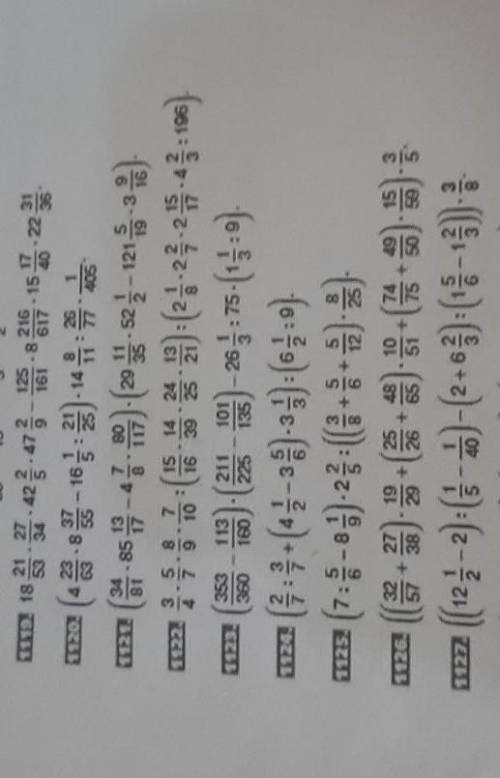 1119. 18 21/53 · 27/34 · 42 2/5 · 47 2/9 − 125/161 · 8 216/617 · 15 17/40 · 22 31/36.
1120. (4 23/63 · 8 37/55 − 16 1/5 : 21/25) · 14 8/11 : 26/77 · 1/405.
1121. (34/81 · 85 13/17 − 4 7/8 · 80/117) · (29 11/35 · 52 1/2 − 121 5/19 · 3 9/16).
1122. 3/4 · 5/7 · 8/9 · 7/10 : (15/16 · 14/39 · 24/25 · 13/21) : (2 1/8 · 2 2/7 · 2 15/17 · 4 2/3 : 196).
1123. (353/360 − 113/160) · (211/225 − 101/135) − 26 1/3 : 75 · (1 1/3 : 9).
1124. (2/7 : 3/7 + (4 1/2 − 3 5/6) · 3 1/3) : (6 1/2 : 9).
1125. (7 : 5/6 − 8 1/9) · 2 2/5 : ((3/8 + 5/6 + 5/12) · 8/25).
1126. (((32/57 + 27/38) · 19/29 + (25/26 + 48/65) · 10/51 + (74/75 + 49/50) · 15/59) · 3/5
1127. (((12 1/2 − 2) : (1/5 − 1/40) − (2 + 6 2/3) : (1 5/6 − 1 2/3)) · 3/8